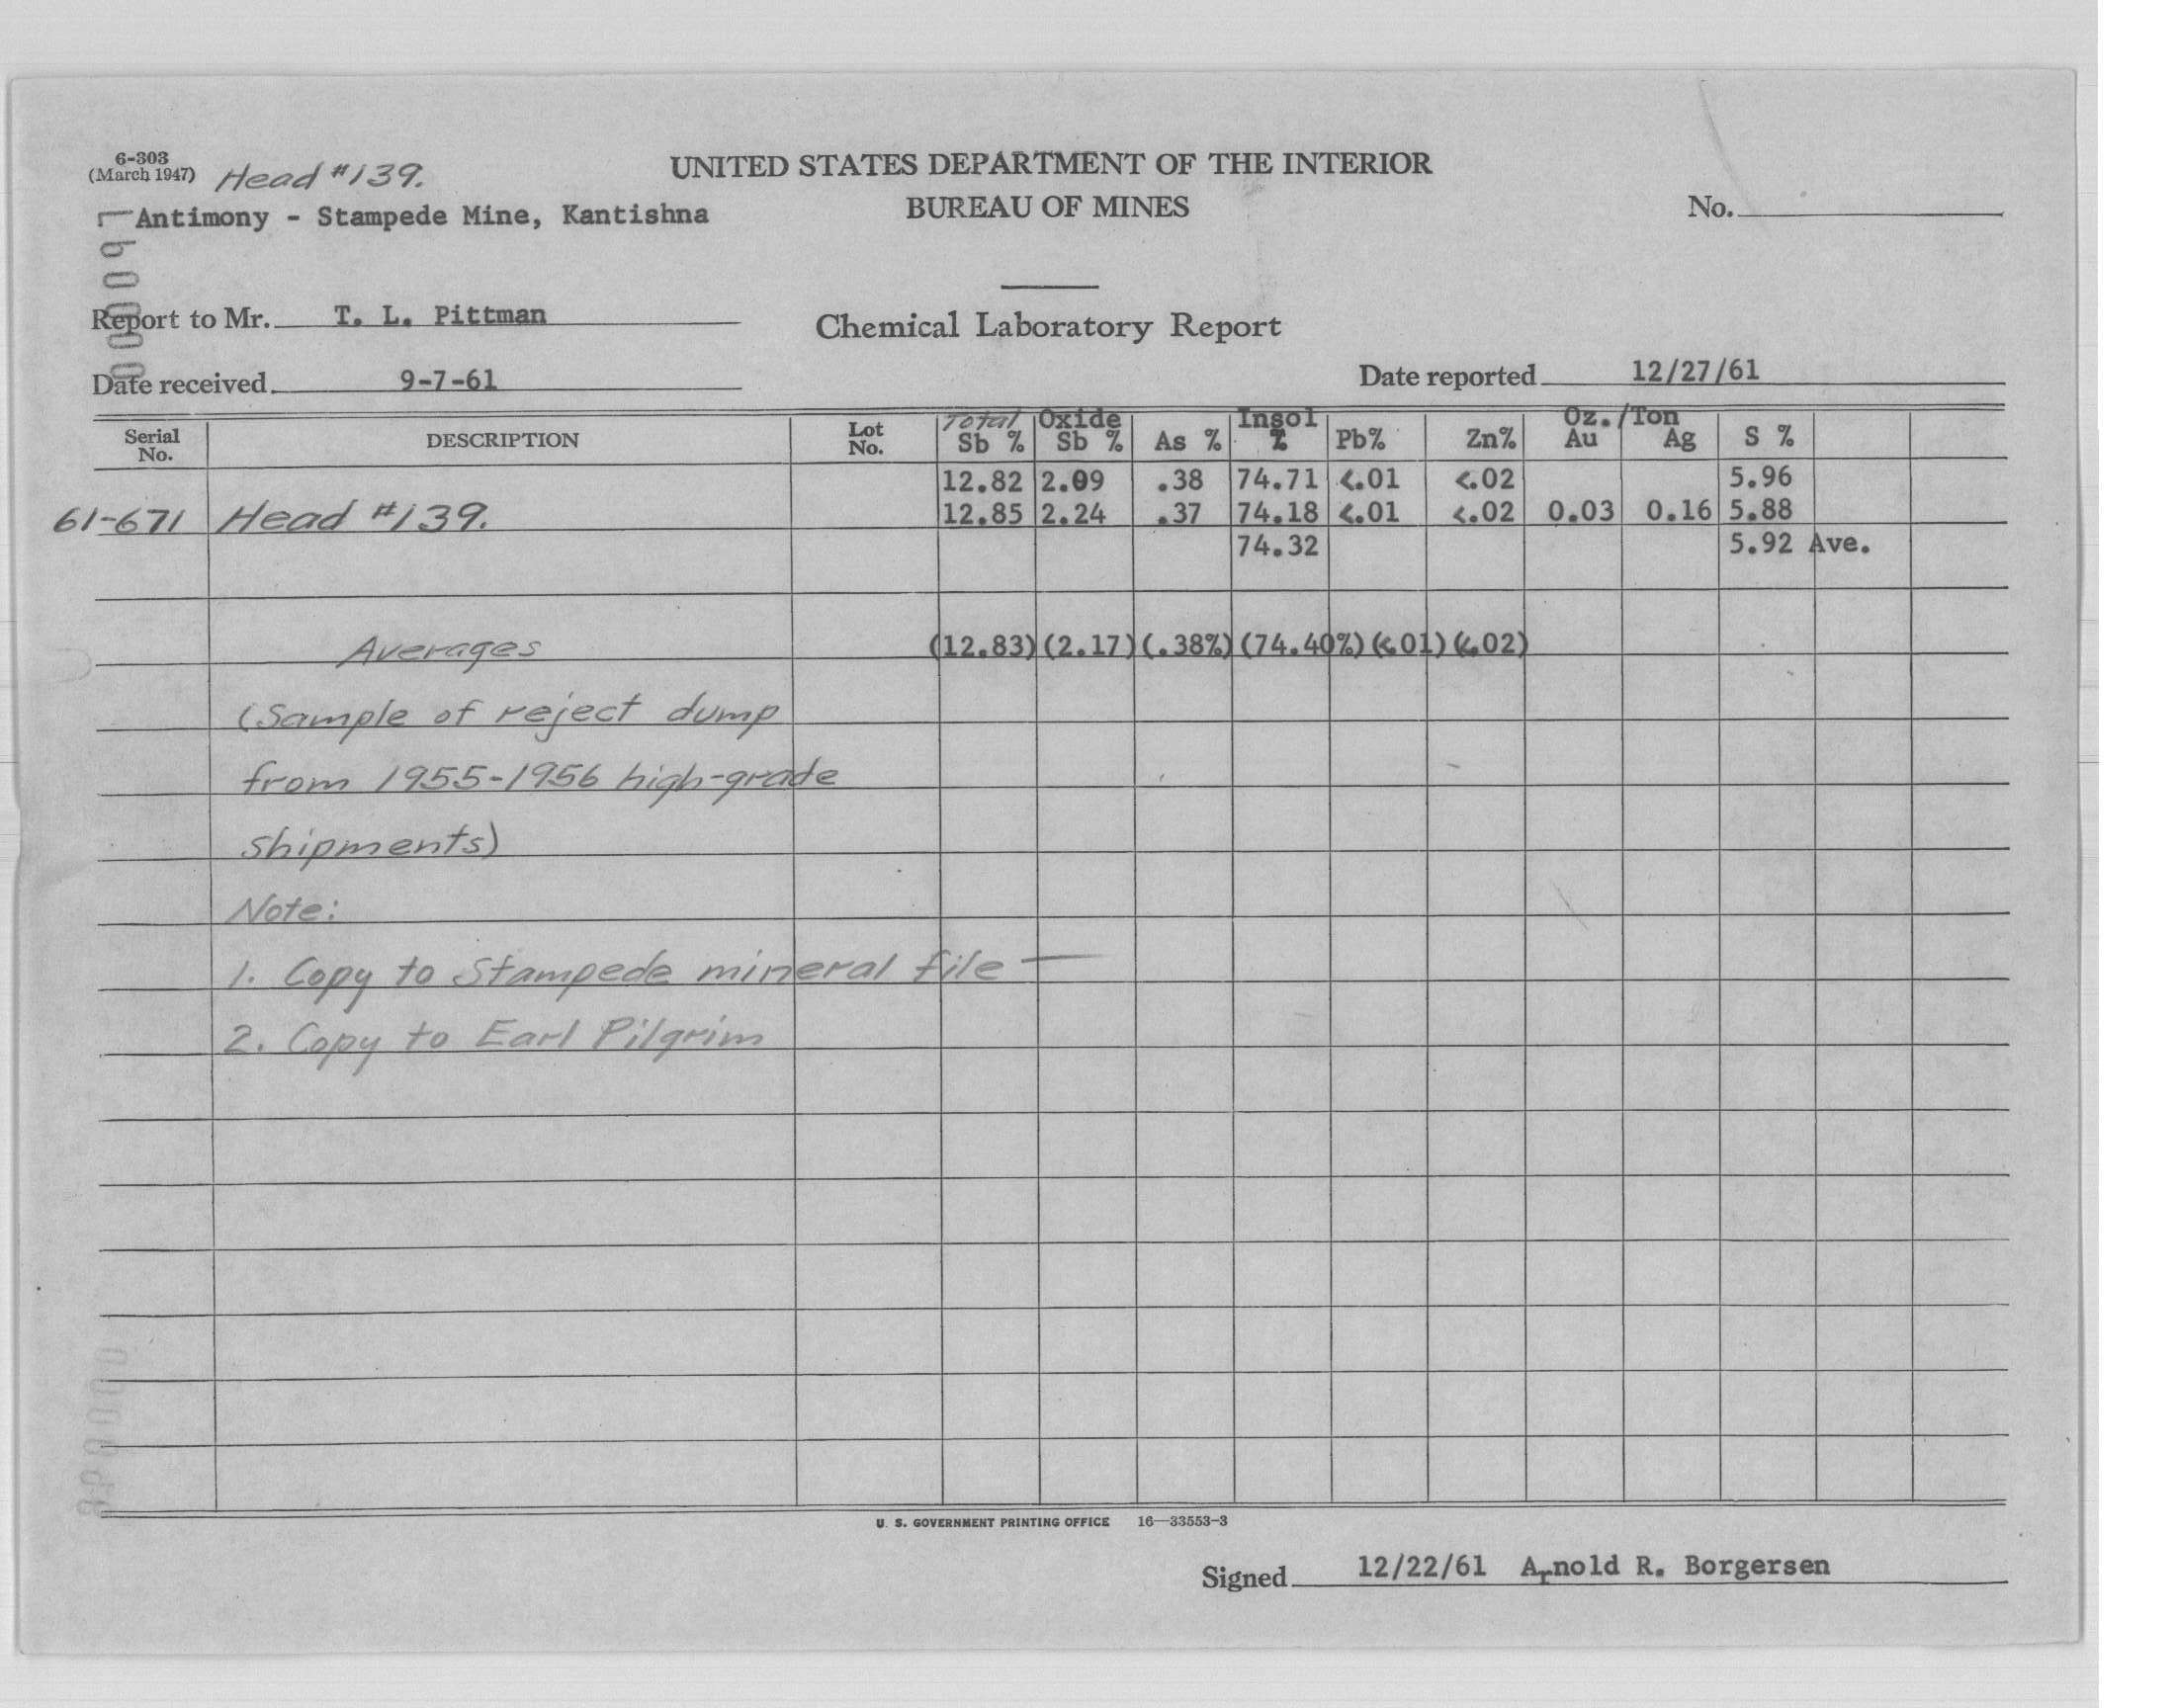 6-303
(March 1947) Head #139.
UNITED STATES DEPARTMENT OF THE INTERIOR
BUREAU OF MINES
No.
Antimony - Stampede Mine, Kantishna
Report to Mr. T. L. Pittman
Chemical Laboratory Report
Date received 9-7-61
Date reported 12/27/61
Serial No. DESCRIPTION Lot No. Total Sb % Oxide Sb % As % Insol % Pb% Zn% Oz./Ton Au Ag S %
12.82 2.09 .38 74.71 <.01 <.02 5.96
61-671 Head #139. 12.85 2.24 .37 74.18 <.01 <.02 0.03 0.16 5.88
74.32 5.92 Ave.
Averages (12.83) (2.17) (.38%) (74.40%) (<.01) (<.02)
(Sample of reject dump
from 1955-1956 high-grade
shipments)
Note:
1. Copy to Stampede mineral file —
2. Copy to Earl Pilgrim
U. S. GOVERNMENT PRINTING OFFICE 16—33553-3
Signed 12/22/61 Arnold R. Borgersen